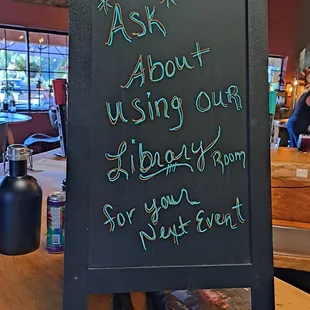 *Ask*
About
using our
Library Room
for your
Next Event